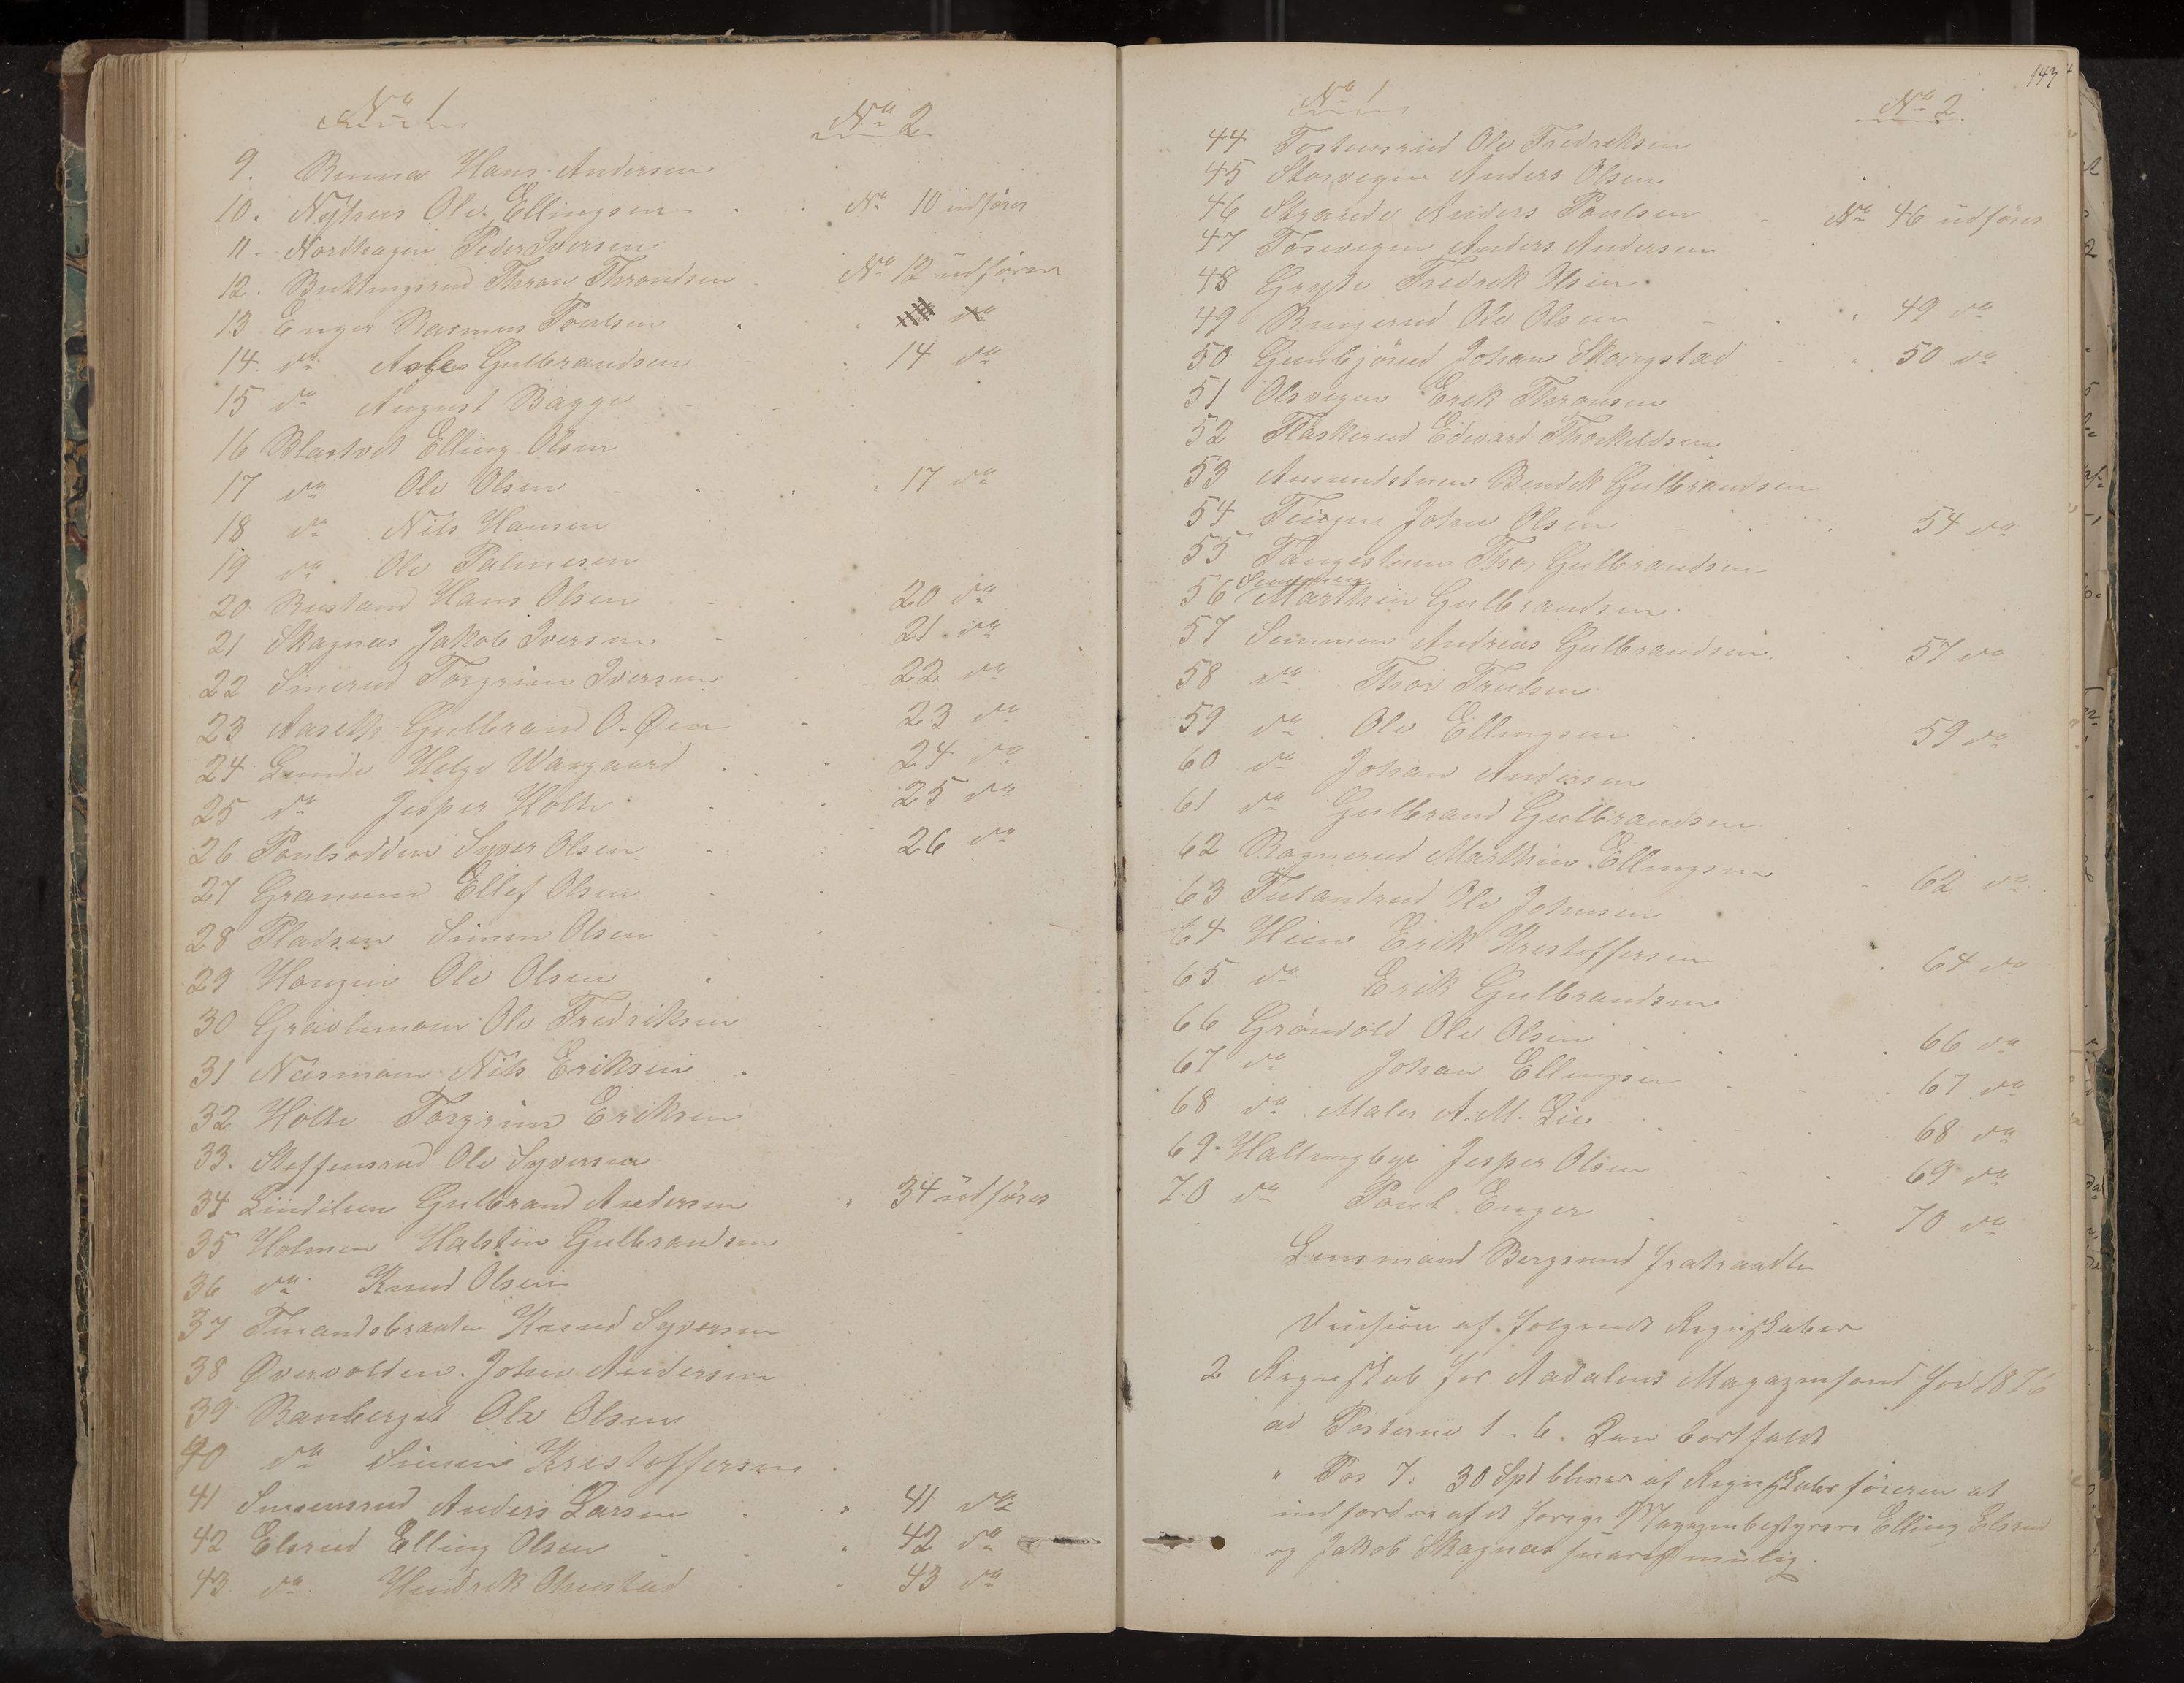 No 1
No 2
9. Renna Hans Andersen
10. Nyhus Ole Ellingsen No 10 udföres
11. Nordhagen Peder Iversen
12. Buttingsrud Thron Throndsen No 12 udföres
13 Enger Rasmus Poulsen do
14 do Gulbrandsen 14 do
15 do August Bagge
16 Blaktvet Elling Olsen
17 do Ole Olsen 17 do
18 do Nils Hansen
19 do Ole Palmesen
20 Rustand Hans Olsen 20 do
21 Skagnæs Jakob Iversen 21 do
22 Smerud Torgrim Iversen 22 do
23 Aaseth Gulbrand O. Øen 23 do
24 Lunde Helge Waagaard 24 do
25 do Jesper Holte 25 do
26 Poulsodden Syver Olsen 26 do
27 Granum Ellef Olsen
28 Pladsen Simen Olsen
29 Haugen Ole Olsen
30 Gravlimoen Ole Fredriksen
31 Næsmoen Nils Eriksen
32 Holte Torgrim Eriksen
33. Steffensrud Ole Syversen
34 Lindelien Gulbrand Andersen " 34 udföres
35 Holmen Halsten Gulbrandsen
36 do Knud Olsen
37 Knud Syversen
38 Øvervolden Johan Andersen
39 Ranberget Ole Olsen
40 do Simen Kristoffersen
41 Semmensrud Anders Larsen " 41 do
42 Elsrud Elling Olsen " 42 do
43 do Hendrik Olsenstad 43 do
147
No 1
No 2.
44 Tostensrud Ole Fredriksen
45 Storvegen Anders Olsen
46 Strande Anders Poulsen No 46 udföres
47 Tosevegen Anders Andersen
48 Gryte Fredrik Olsen
49 Ringerud Ole Olsen " 49 do
50 Gunbjörud Johan Skougstad " 50 do
51 Olsvegen Erik Thronsen
52 Flaskerud Edvard Thorkildsen
53 Amundstuen Bendik Gulbrandsen
54 John Olsen 54 do
55 Tangestuen Thor Gulbrandsen
56 Semmen Marthin Gulbrandsen
57 Semmen Andreas Gulbrandsen 57 do
58 do Thor Trulsen
59 do Ole Ellingsen 59 do
60 do Johan Andersen
61 do Gulbrand Gulbrandsen
62 Ragnerud Marthin Ellingsen 62 do
63 Ole Johnsen
64 Hien Erik Kristoffersen 64 do
65 do Erik Gulbrandsen
66 Gröndold Ole Olsen 66 do
67 do Johan Ellingsen 67 do
68 do Maler A. M. Lie 68 do
69 Hallingbye Jesper Olsen 69 do
70 do Poul Enger 70 do
Lensmand Bergsund fratraadte
af fölgende Regnskaber
2 Regnskab for Aadalens Magazinfond for 1876
ad Posterne 1 – 6. Den bortfaldt
" Pos 7: 30 Spd bliver af Regnskabsföreren at
indfordre af de forrige Magazinbestyrere Elling Elsrud
og Jakob Skagnæs snarest mulig.